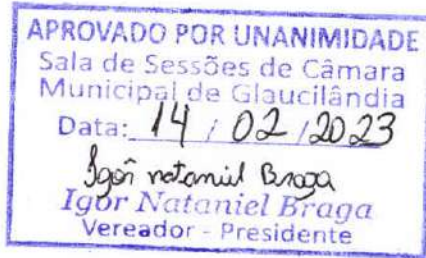 APROVADO POR UNANIMIDADE
Sala de Sessões de Câmara
Municipal de Glaucilândia
Data: 14 / 02 / 2023
Igor nataniel Braga
Igor Nataniel Braga
Vereador - Presidente